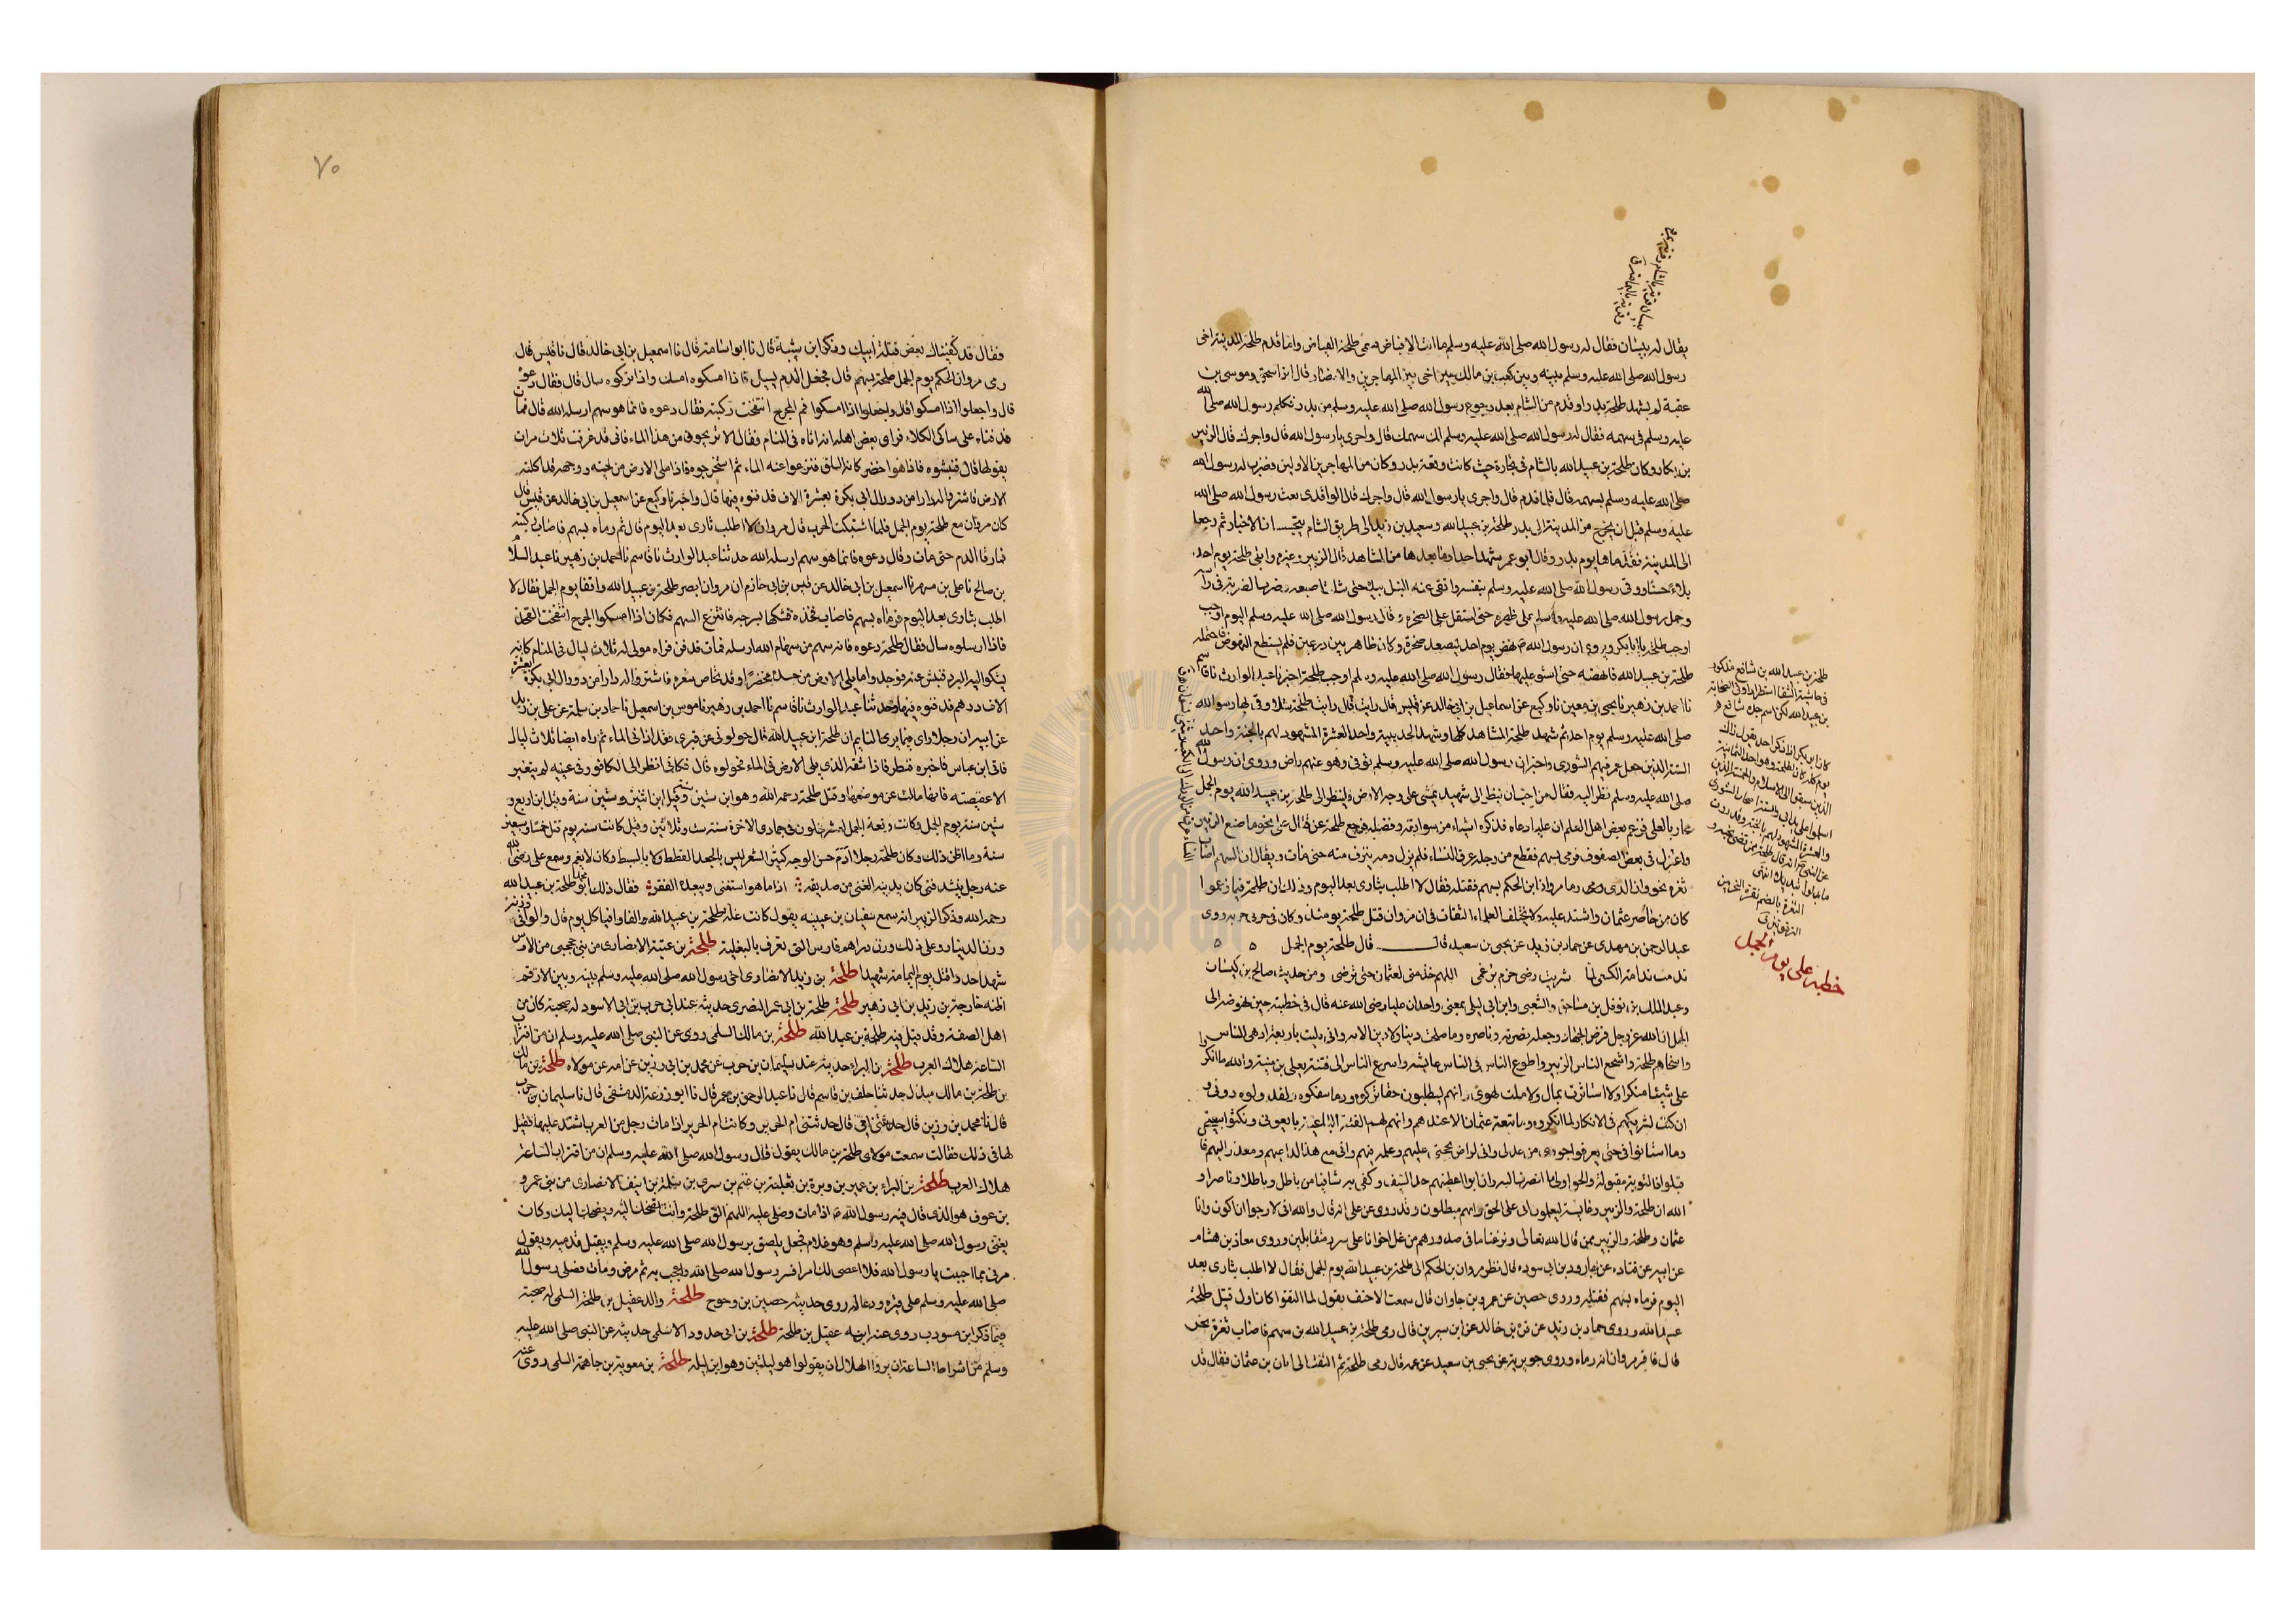 يقال له بيسان فقال له رسول الله صلى الله عليه وسلم ما انت الا فياض فسمى طلحة الفياض ولما قدم طلحة المدينة اخى
رسول الله صلى الله عليه وسلم بينه وبين كعب بن مالك حين اخى بين المهاجرين والانصار قال ابن اسحق وموسى بن
عقبة لم يشهد طلحة بدرا وقدم من الشام بعد رجوع رسول الله صلى الله عليه وسلم من بدر فكلم رسول الله صلى الله
عليه وسلم فى سهمه فقال له رسول الله صلى الله عليه وسلم لك سهمك قال واجرى يا رسول الله قال واجرك قال الزبير
بن بكار وكان طلحة بن عبيد الله بالشام فى تجارة حيث كانت وقعة بدر وكان من المهاجرين الاولين فضرب له رسول الله
صلى الله عليه وسلم بسهمه قال فلما قدم قال واجرى يا رسول الله قال واجرك قال الواقدى بعث رسول الله صلى الله
عليه وسلم قبل ان يخرج من المدينة الى بدر طلحة بن عبيد الله وسعيد بن زيد الى طريق الشام يتجسسان الاخبار ثم رجعا
الى المدينة فقدماها يوم بدر وقال ابو عمر شهد احدا وما بعدها من المشاهد قال الزبير وغيره وابلى طلحة يوم احد
بلاء حسنا ووقى رسول الله صلى الله عليه وسلم بنفسه واتقى عنه النبل بيده حتى شلت اصبعه وضرب الضربة فى راسه
وحمل رسول الله صلى الله عليه وسلم على ظهره حتى استقل على الصخرة وقال رسول الله صلى الله عليه وسلم اليوم اوجب
اوجب طلحة يا ابا بكر ويروى ان رسول الله نهض يوم احد ليصعد صخرة وكان ظاهر بين درعين فلم يستطع النهوض فاحتمله
طلحة بن عبيد الله فانهضه حتى استوى عليها فقال رسول الله صلى الله عليه وسلم اوجب طلحة اخبرنا عبد الوارث نا قاسم
نا احمد بن زهير نا يحيى بن معين نا وكيع عن اسماعيل بن ابى خالد عن قيس قال رايت يد طلحة شلاء وقى بها رسول الله
صلى الله عليه وسلم يوم احد ثم شهد طلحة المشاهد كلها وشهد الحديبية واحد العشرة المشهود لهم بالجنة واحد
الستة الذين جعل عمر فيهم الشورى واخبر ان رسول الله صلى الله عليه وسلم توفى وهو عنهم راض وروى ان رسول الله
صلى الله عليه وسلم نظر اليه فقال من احب ان ينظر الى شهيد يمشى على وجه الارض فلينظر الى طلحة بن عبيد الله يوم الجمل
محاربا لعلى فزعم بعض اهل العلم ان عليا دعاه فذكره اشياء من سوابقه وفضله فرجع طلحة عن قتال على نحو ما صنع الزبير
واعتزل فى بعض الصفوف فرمى بسهم فقطع من رجله عرق النساء فلم يزل دمه ينزف منه حتى مات ويقال ان السهم اصاب
ثغرة نحره وان الذى رماه مروان بن الحكم بسهم فقتله فقال لا اطلب بثارى بعد اليوم وذلك ان طلحة فيما زعموا
كان ممن حاصر عثمان واشتد عليه ولا يختلف العلماء الثقات فى ان مروان قتل طلحة يومئذ وكان فى حزبه روى
عبد الرحمن بن مهدى عن حماد بن زيد عن يحيى بن سعيد قال قال طلحة يوم الجمل
ندمت ندامة الكسعى لما شريت رضى حزم بن غمى اللهم خذ منى لعثمان حتى ترضى ومن حديث صالح بن كيسان
وعبد الملك بن نوفل بن مساحق والشعبى وابن ابى ليلى بمعنى واحد ان عليا رضى الله عنه قال فى خطبته حين نهوضه الى
الجمل ان الله عز وجل فرض الجهاد وجعله نصرته وناصره وما صلحت دنيا ولا دين الا به وانى بليت باربعة ادهى الناس
واسخاهم طلحة واشجع الناس الزبير واطوع الناس فى الناس عايشة واسرع الناس الى فتنة يعلى بن منية والله ما انكروا
على شيئا منكرا ولا استاثرت بمال ولا ملت بهوى وانهم ليطلبون حقا تركوه ودما سفكوه ولقد ولوه دونى
ان كنت لشريكهم فى الانكار لما انكروه وما تبعة عثمان الا عندهم وانهم لهم الفئة الباغية بايعونى ونكثوا بيعتى
وما استانوا فى حتى يعرفوا جورى من عدلى وانى لراض بحجة الله عليهم وعلمه فيهم وانى مع هذا لداعيهم ومعذر اليهم فان
قبلوا فالتوبة مقبولة والحق اولى ما انصرف اليه وان ابوا اعطيتهم حد السيف وكفى به شافيا من باطل وناصرا و
الله ان طلحة والزبير وعايشة ليعلمون انى على الحق وانهم مبطلون وقد روى عن على انه قال والله انى لارجو ان اكون وانا
عثمان وطلحة والزبير ممن قال الله تعالى ونزعنا ما فى صدورهم من غل اخوانا على سرر متقابلين وروى معاذ بن هشام
عن ابيه عن قتادة عن الجارود بن ابى سبرة قال نظر مروان بن الحكم الى طلحة بن عبيد الله يوم الجمل فقال لا اطلب بثارى بعد
اليوم فرماه بسهم فقتله وروى حصين عن عمرو بن جاوان قال سمعت الاحنف يقول لما التقوا كان اول قتيل طلحة
عبيد الله وروى حماد بن زيد عن قرة بن خالد عن ابن سيرين قال رمى طلحة بن عبيد الله بسهم فاصاب ثغرة نحره
قال فاقر مروان انه رماه وروى جويرية عن يحيى بن سعيد عن عمه قال رمى طلحة ثم التفت الى ابان بن عثمان فقال قد
طلحة بن عبد الله بن شافع مذكور
خطبة على يوم الجمل
٧٠
فقال قد كفيناك بعض قتلة ابيك وذكر ابن شيبة قال نا ابو اسامة قال نا اسمعيل بن ابى خالد قال نا قيس قال
رمى مروان الحكم يوم الجمل طلحة بسهم قال فجعل الدم يسيل فاذا امسكوه امسك واذا تركوه سال قال فقال دعوه
قال وجعلوا اذا امسكوا فم الجرح انتفخت ركبته فقال دعوه فانما هو سهم ارسله الله قال فمات
فدفناه على شاطى الكلاء فراى بعض اهله انه اتاه فى المنام فقال الا تريحونى من هذا الماء فانى قد غرقت ثلاث مرات
يقولها قال فنبشوه فاذا هو اخضر كانه السلق فنزعوا عنه الماء ثم استخرجوه فاذا ما يلى الارض من لحيته ووجهه قد اكلته
الارض فاشتروا له دارا من دور ال ابى بكرة بعشرة الاف فدفنوه فيها قال واخبرنا وكيع عن اسمعيل بن ابى خالد عن قيس قال
كان مروان مع طلحة يوم الجمل فلما اشتبكت الحرب قال مروان لا اطلب ثارى بعد اليوم قال ثم رماه بسهم فاصاب ركبته
فما رقا الدم حتى مات وقال دعوه فانما هو سهم ارسله الله حدثنا عبد الوارث نا قاسم نا احمد بن زهير نا عبد السلام
بن صالح نا على بن مسهر نا اسمعيل بن ابى خالد عن قيس بن ابى حازم ان مروان ابصر طلحة بن عبيد الله واقفا يوم الجمل فقال لا
اطلب بثارى بعد اليوم فرماه بسهم فاصاب فخذه فشكها بسرجه فانتزع السهم فكان اذا امسكوا الجرح انتفخت الفخذ
فاذا ارسلوه سال فقال طلحة دعوه فانه سهم من سهام الله ارسله فمات فدفن فراه مولى له ثلاث ليال فى المنام كانه
يشكو اليه البرد فنبش عنه فوجد ما يلى الارض من جسده مخضرا وقد تحاص شعره فاشتروا له دارا من دور ال ابى بكرة بعشرة
الاف درهم فدفنوه فيها وحدثنا عبد الوارث نا قاسم نا احمد بن زهير نا موسى بن اسمعيل نا حماد بن سلمة عن على بن زيد
عن ابيه ان رجلا راى فيما يرى النايم ان طلحة بن عبيد الله قال حولونى عن قبرى فقد اذانى الماء ثم راه ايضا ثلاث ليال
فاتى ابن عباس فاخبره فنظر فاذا شقه الذى يلى الارض فى الماء فحولوه قال فكانى انظر الى الكافور فى عينيه لم يتغير
الا عقيصته فانها مالت عن موضعها وقتل طلحة رحمه الله وهو ابن ستين وقيل ابن اثنين وستين سنة وقيل ابن اربع و
ستين سنة يوم الجمل وكانت وقعة الجمل لعشر خلون فى جمادى الاخرة سنة ست وثلاثين وقيل كانت سنه يوم قتل خمسا وسبعين
سنة وما اظن ذلك وكان طلحة رجلا آدم حسن الوجه كثير الشعر ليس بالجعد القطط ولا بالسبط وكان لا يغير وسمع على رضى الله
عنه رجل ينشد فتى كان يدنيه الغنى من صديقه اذا ما هو استغنى ويبعده الفقر فقال ذلك ابو محمد طلحة بن عبيد الله
رحمه الله وذكر الزبير انه سمع سفيان بن عيينه يقول كانت غلة طلحة بن عبيد الله الفا وافيا كل يوم قال والوافى وزنه
وزن الدينار وعلى ذلك وزن دراهم فارس التى تعرف بالبغلية طلحة بن عتبة الانصارى من بنى جحجبى من الاوس
شهد احد وقتل يوم اليمامة شهيدا طلحة بن زيد الانصارى اخى رسول الله صلى الله عليه وسلم بينه وبين الارقم
اظنه خارجة بن زيد بن ابى زهير طلحة طلحة بن ابى عمر النضرى حديثه عند ابى حرب بن ابى الاسود له صحبة كان من
اهل الصفة وقد قيل فيه طلحة بن عبد الله طلحة بن مالك السلمى روى عن النبى صلى الله عليه وسلم ان من اقتراب
الساعة هلاك العرب حديثه عند سليمان بن حرب عن محمد بن ابى رزين عن امه عن مولاه طلحة بن مالك
قال نا محمد بن رزين قال حدثتنى امى قال حدثتنى ام الحرير وكانت ام الحرير اذا مات رجل من العرب اشتد عليها فقيل
لها فى ذلك فقالت سمعت مولاى طلحة بن مالك يقول قال رسول الله صلى الله عليه وسلم ان من اقتراب الساعة
هلاك العرب طلحة بن البراء بن عمير بن وبرة بن ثعلبة بن غنم بن سرى بن سلمة بن انيف الانصارى من بنى عمرو
بن عوف هو الذى قال فيه رسول الله اذ مات وصلى عليه اللهم الق طلحة وانت تضحك اليه ويضحك اليك وكان
لقى رسول الله صلى الله عليه وسلم وهو غلام فجعل يلصق برسول الله صلى الله عليه وسلم ويقبل قدميه ويقول
مرنى بما احببت يا رسول الله فلا اعصى لك امرا فسر رسول الله صلى الله واعجب به ثم مرض ومات فصلى رسول الله
صلى الله عليه وسلم على قبره ودعا له روى حديثه حصين بن وحوح طلحة والد عقيل بن طلحة السلمى له صحبة
فيما ذكر ابن روى عنه ابنه عقيل بن طلحة طلحة بن ابى حدرد الاسلمى حديثه عن النبى صلى الله عليه
وسلم من اشراط الساعة ان يروا الهلال يقولوا هو ليلتين وهو ابن ليلة طلحة بن معوية بن جاهمة السلمى روى عنه